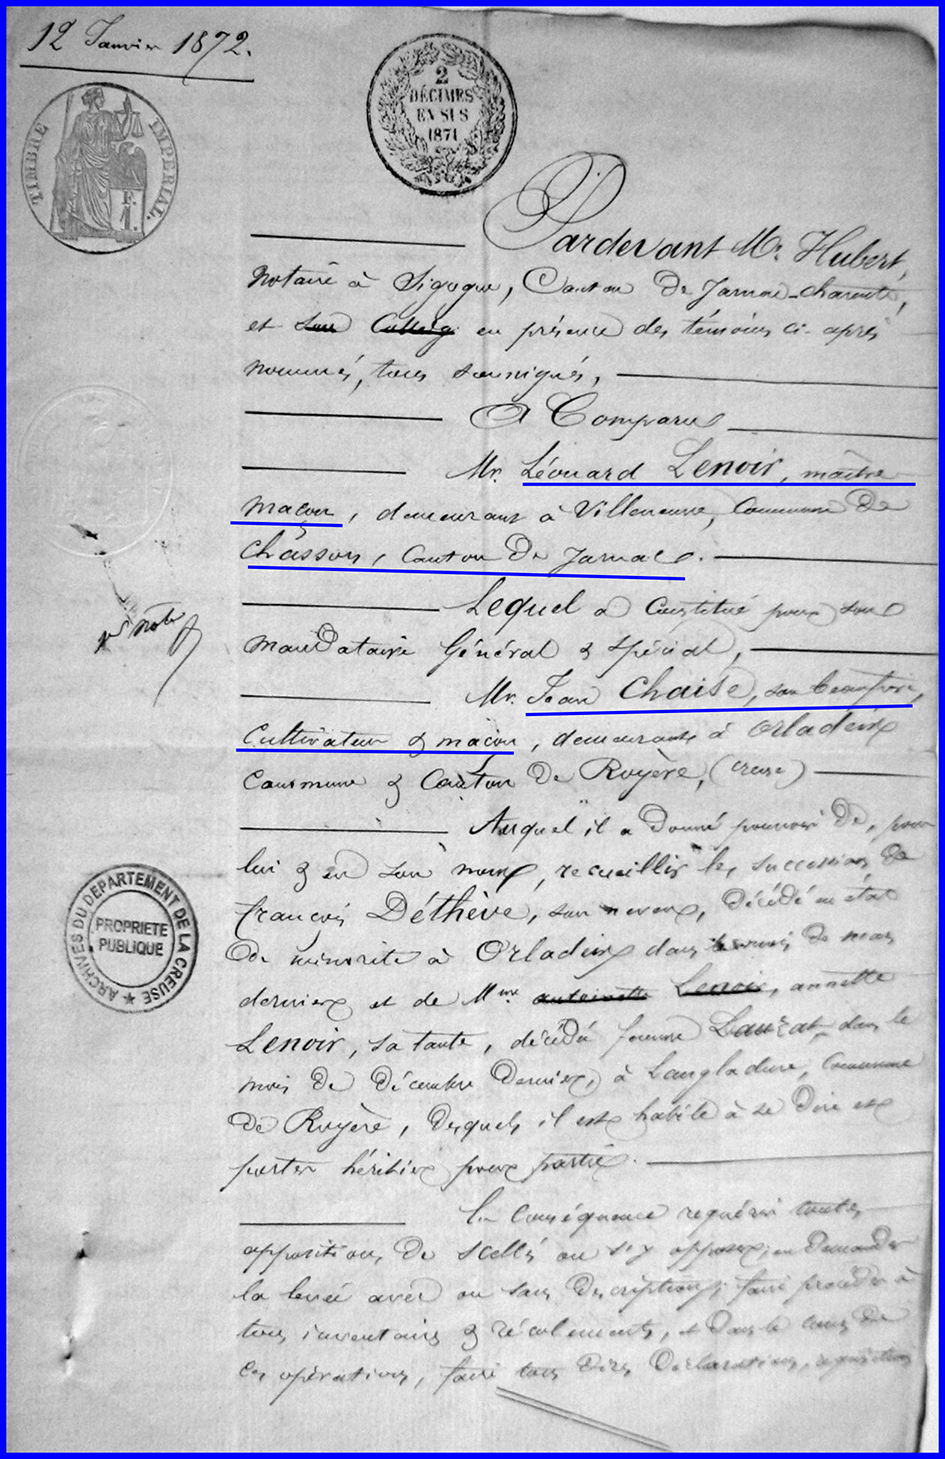 12 Janvier 1872.
TIMBRE IMPERIAL.
1 F.
2
DÉCIMES
EN SUS
1871
Pardevant Mr. Hubert,
Notaire à Sigogne, Canton de Jarnac-Charente,
et son Collègue en présence des témoins ci-après
nommés, tous soussignés,
A Comparu
Mr. Léonard Lenoir, maître
maçon, demeurant à Villeneuve, Commune de
Chassors, Canton de Jarnac.
Lequel a Constitué pour son
mandataire Général & Spécial,
Mr. Jean Chaise, son beau frère,
Cultivateur & maçon, demeurant à Orladeix
Commune & Canton de Royère, (Creuse)
Auquel il a Donné pouvoir de, pour
lui & en son nom, recueillir les successions de
françois Déthève, son neveu, décédé en état
de minorité à Orladeix dans le mois de mars
dernier et de Mme antoinette Lenoir, annette
Lenoir, sa tante, décédée femme Lauzat, dans le
mois de décembre dernier, à Langladure, Commune
de Royère, desquels il est habile à se dire et
porter héritier pour partie.
En Conséquence requérir toutes
appositions de scellés ou s'y opposer, en demander
la levée avec ou sans description; faire procéder à
tous inventaires & récolements, et dans le cours de
ces opérations, faire tous dires, déclarations, réquisitions
ARCHIVES DU DEPARTEMENT DE LA CREUSE
PROPRIETE
PUBLIQUE